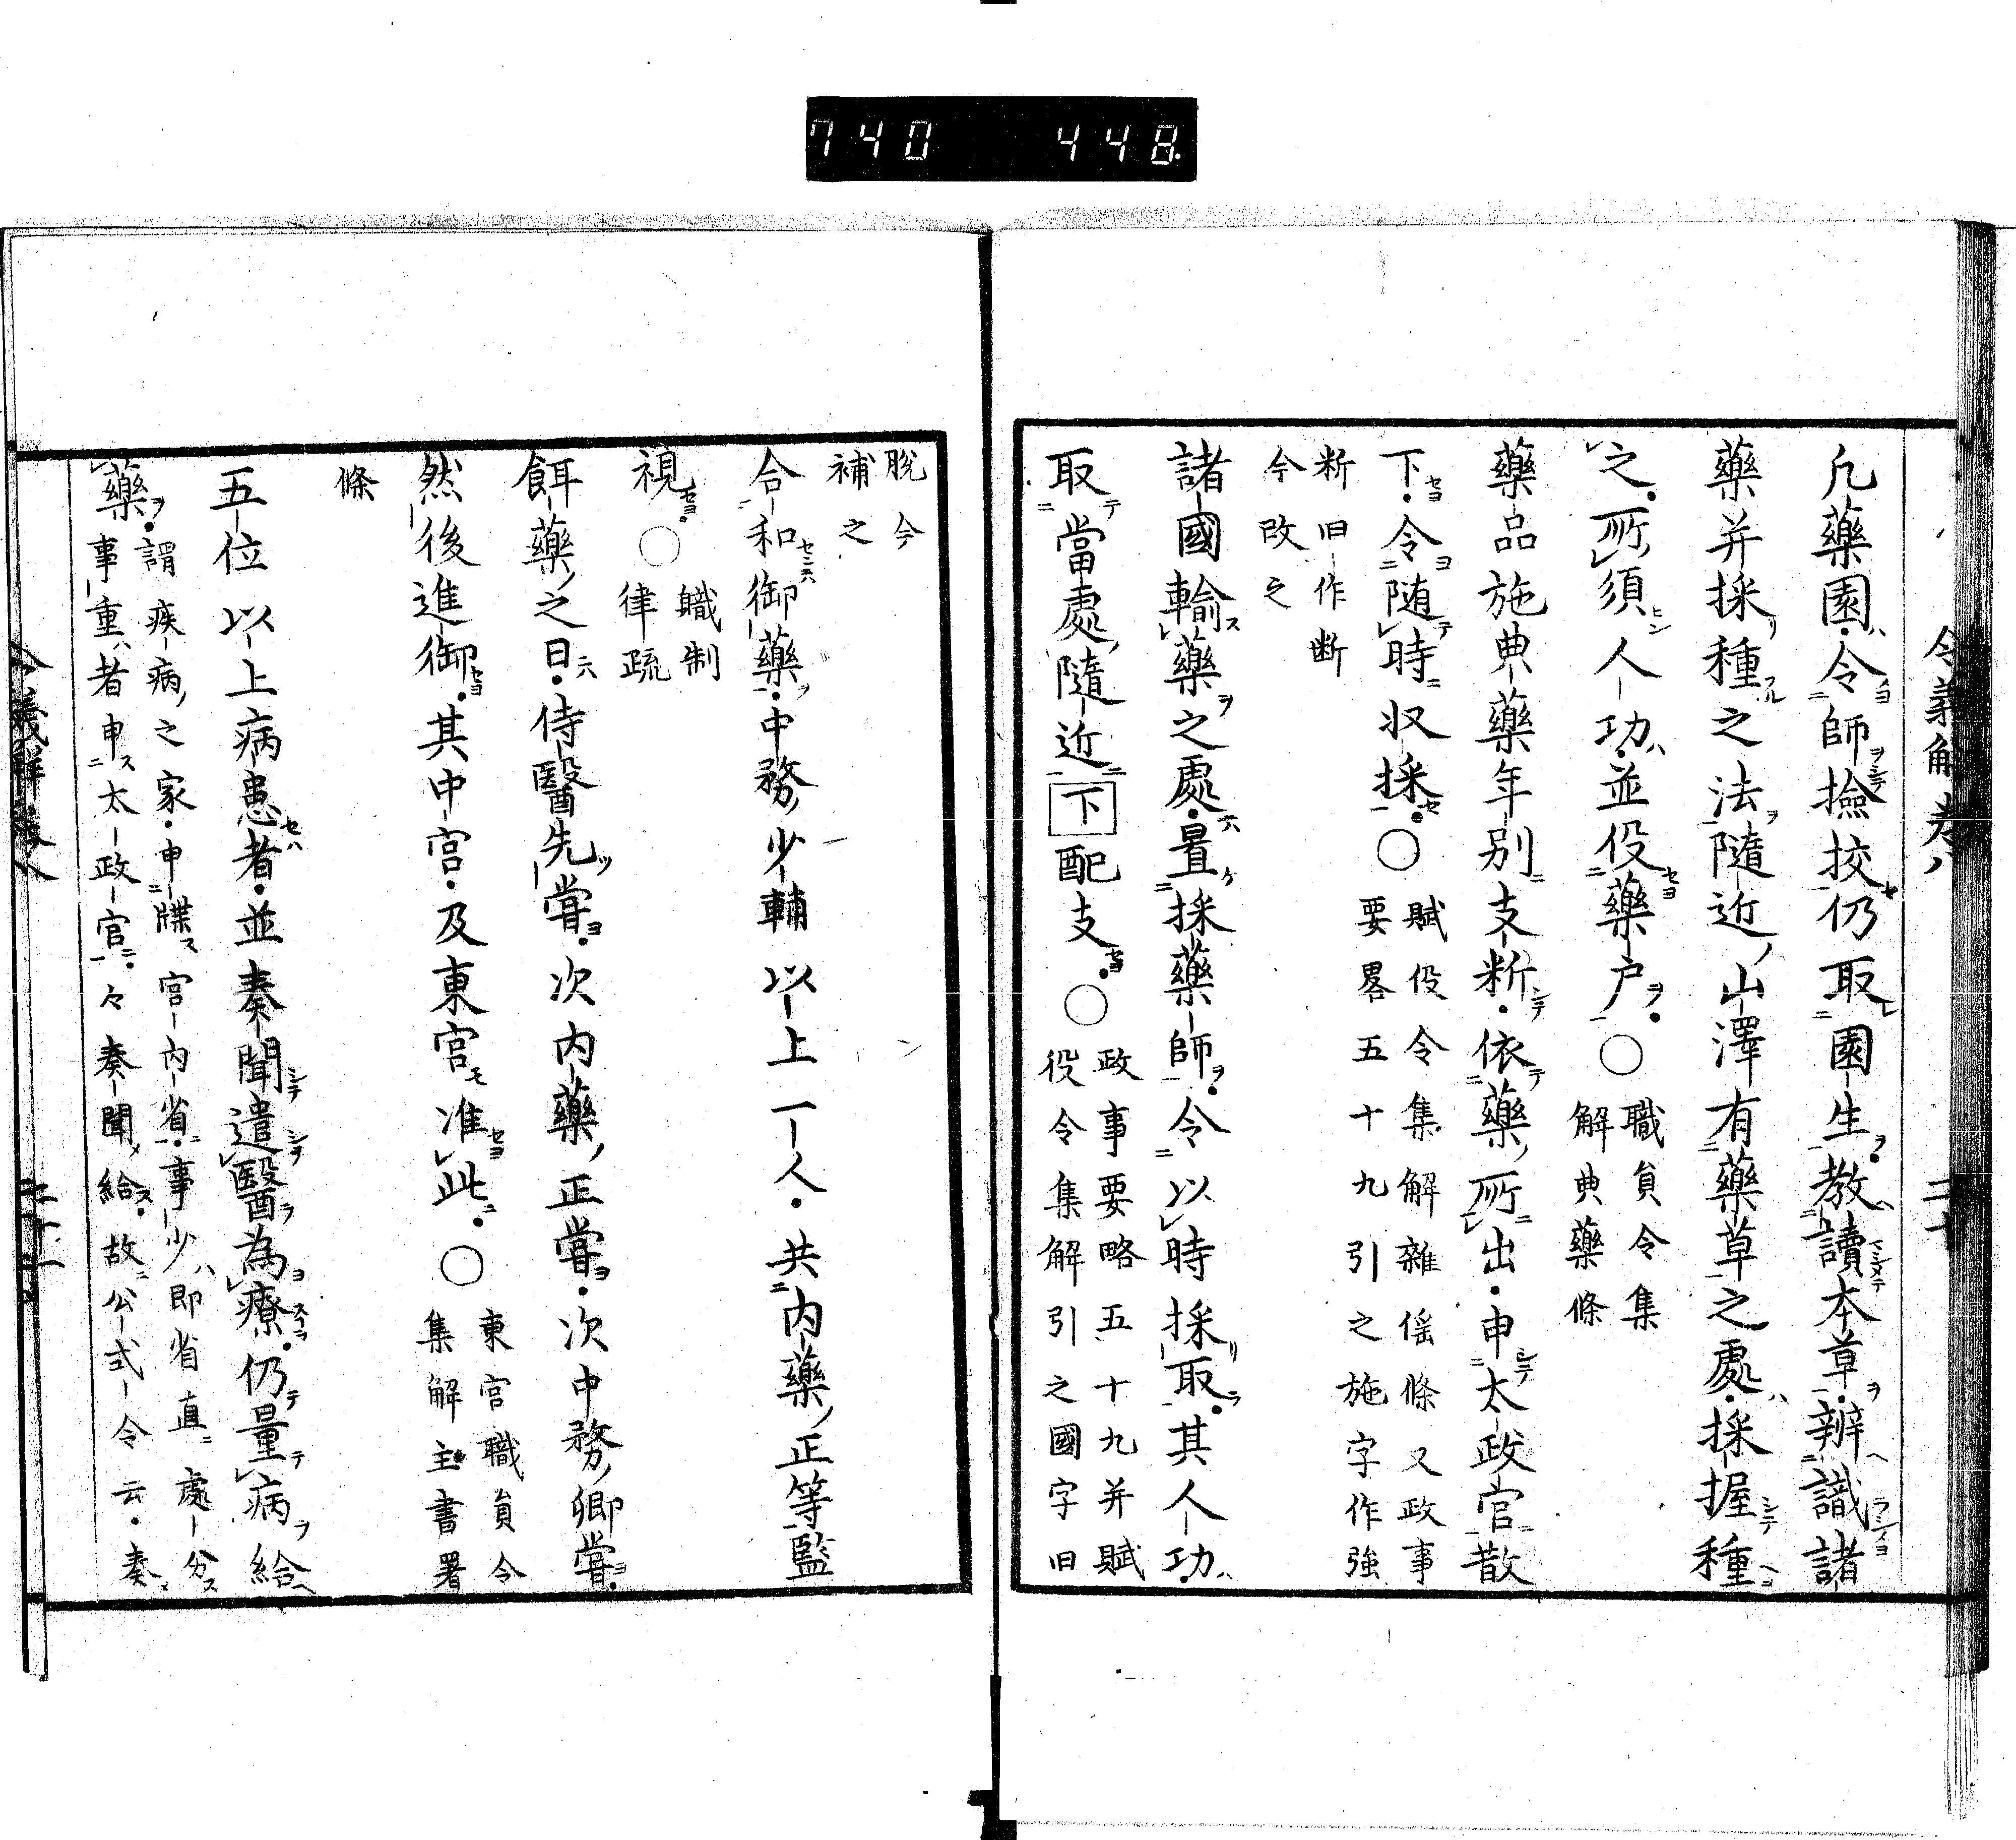 740 448
令義解卷八
凡藥園令師撿挍仍取園生教讀本草辨識諸
藥并採種之法隨近山澤有藥草之處採握種
之所須人功並役藥户○職員令集
解典藥條
藥品施典藥年別支断依藥所出申太政官散
下令随時収採○賦役令集解雜徭條又政事
要畧五十九引之施字作強
断旧作断
今改之
諸國輸藥之處置採藥師令以時採取其人功
取當處隨近下配支○政事要略五十九并賦
役令集解引之國字旧
脫今
補之
合和御藥中務少輔以上一人共内藥正等監
視○職制
律疏
餌藥之日侍醫先嘗次内藥正嘗次中務卿嘗
然後進御其中宮及東宮准此○東宮職員令
集解主書署
條
五位以上病患者並奏聞遣醫為療仍量病給
藥謂疾病之家申牒宮内省事少即省直處分
事重者申太政官々奏聞給故公式令云奏